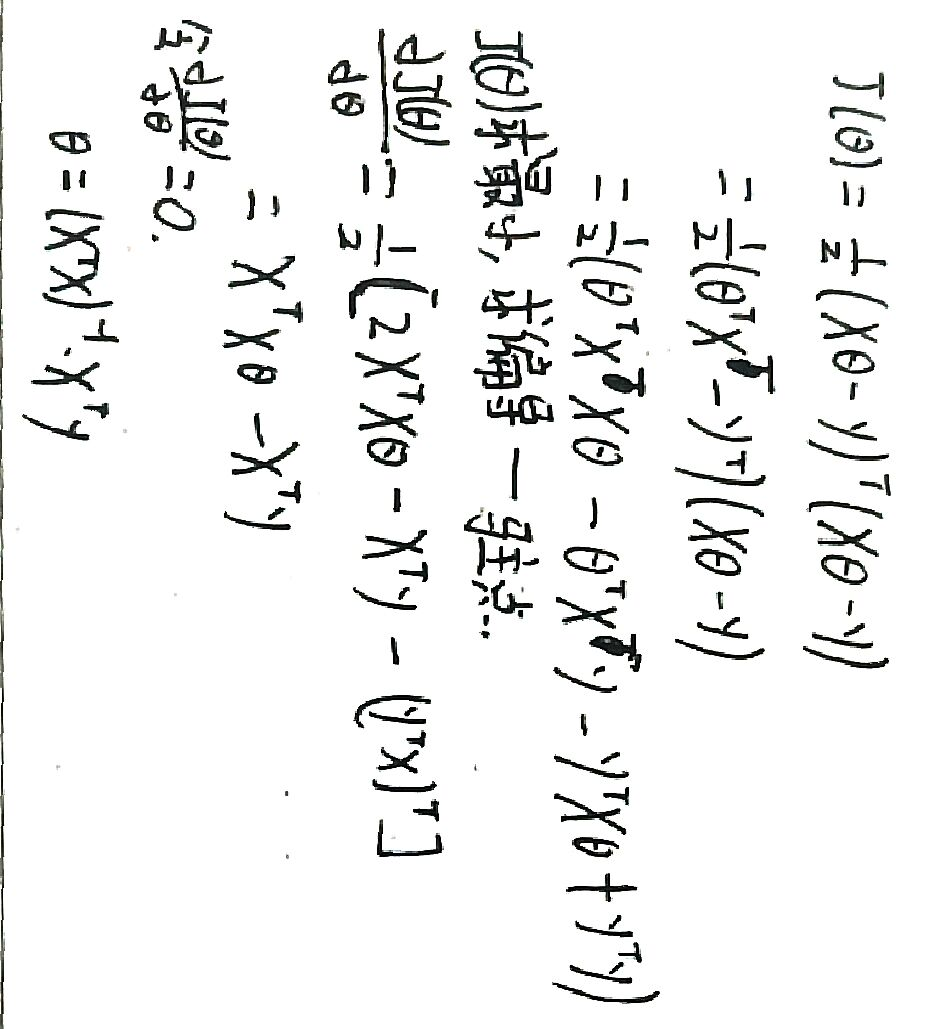 J(θ) = 1/2 (Xθ - y)ᵀ(Xθ - y)
= 1/2 (θᵀXᵀ - yᵀ)(Xθ - y)
= 1/2 (θᵀXᵀXθ - θᵀXᵀy - yᵀXθ + yᵀy)
J(θ)求最小, 求偏导 — 驻点..
dJ(θ)/dθ = 1/2 [2XᵀXθ - Xᵀy - (yᵀX)ᵀ]
= XᵀXθ - Xᵀy
当 dJ(θ)/dθ = 0.
θ = (XᵀX)⁻¹·Xᵀy